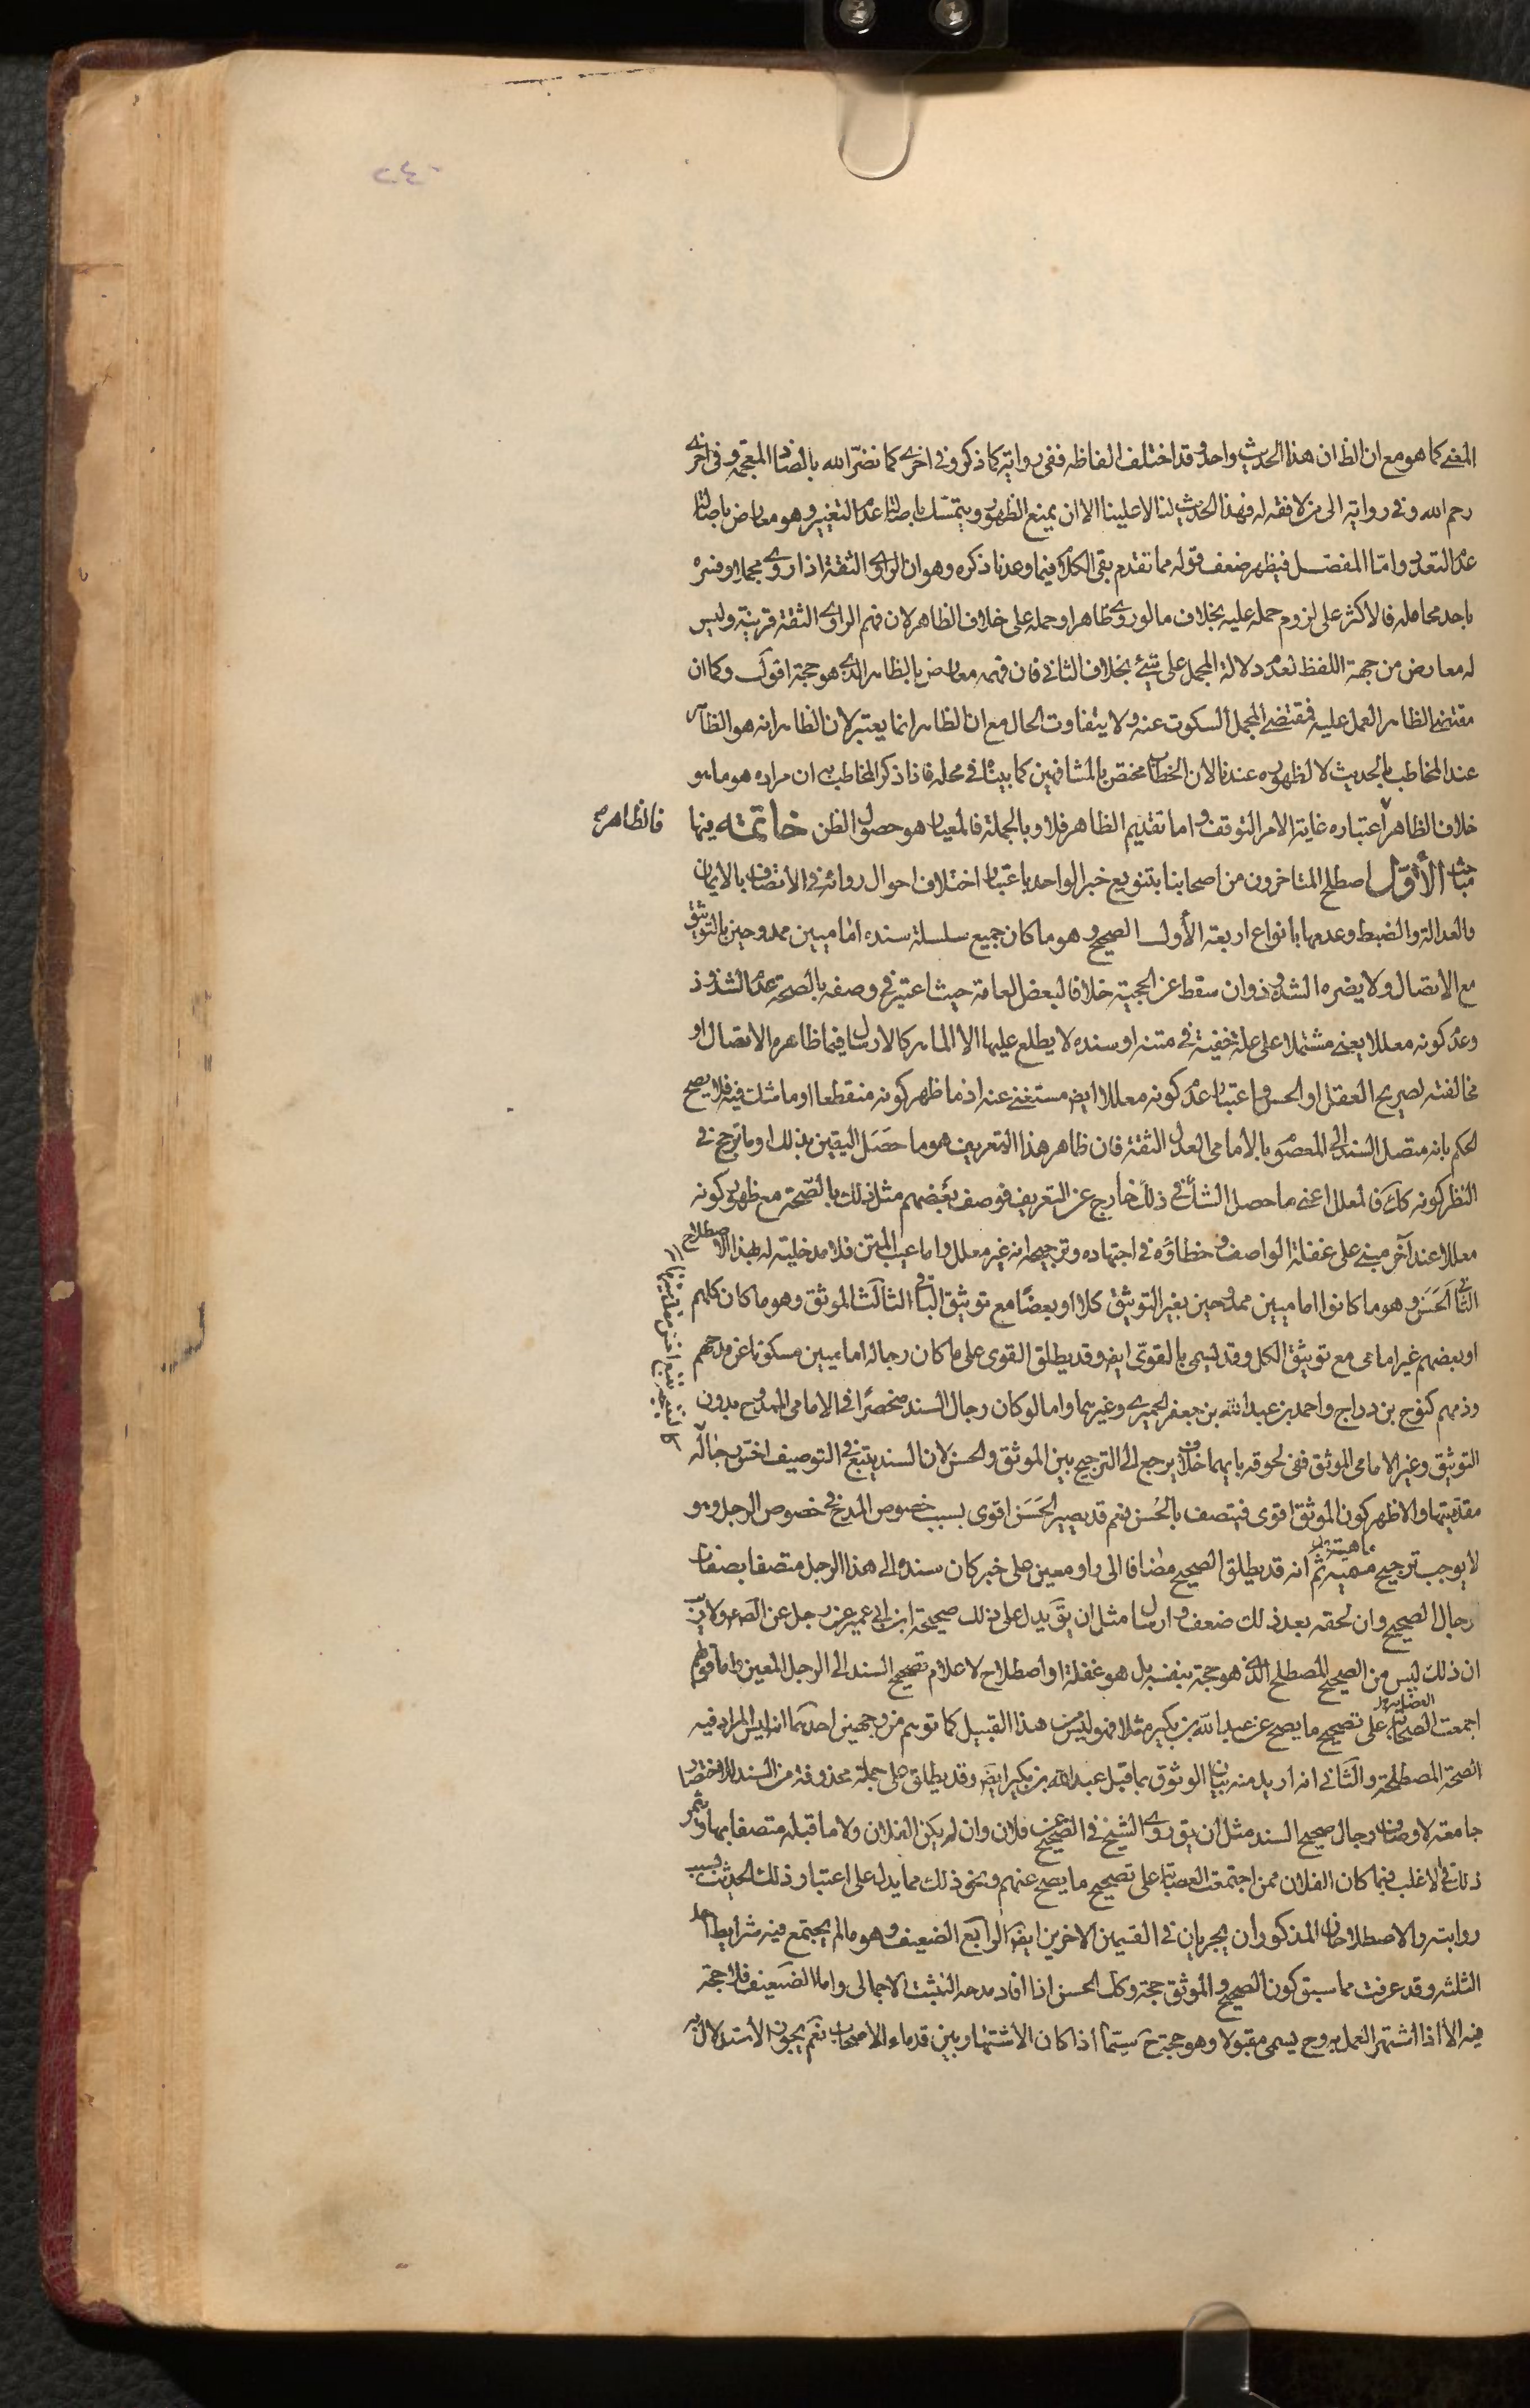 ٢٤٠
المعنى كما هو مع ان الظ ان هذا الحديث واحد وقد اختلف الفاظه ففى رواية كما ذكر وفى اخرى كما نضّر الله بالضاد المعجمة وفى اخرى
رحم الله وفى رواية الى من لا فقه له فهذا الحديث لنا لا علينا الا ان يمنع الظهور ويتمسّك باصالة عدم التغيير وهو معارض باصالة
عدم التعدد وامّا المفصّل فيظهر ضعف قوله مما تقدم بقى الكلام فيما وعدنا ذكره وهو ان الراوى الثقة اذا روى مجملا وفسره
باحد محامله فالاكثر على لزوم حمله عليه بخلاف ما لو روى ظاهرا وحمله على خلاف الظاهر لان فهم الراوى الثقة قرينة وليس
له معارض من جهة اللفظ لعدم دلالة المجمل على شئ بخلاف الثانى فان فهمه معارض بالظاهر الذى هو حجة اقول وكما ان
مقتضى الظاهر العمل عليه فمقتضى المجمل السكوت عنه ولا يتفاوت الحال مع ان الظاهر انما يعتبر لان الظاهر انه هو الظاهر
عند المخاطب بالحديث لا لظهوره عندنا لان الخطاب مختص بالمشافهين كما بيناه فى محله فاذا ذكر المخاطب به ان مراده هو ما هو
خلاف الظاهر اعتباره غاية الامر التوقف واما تقديم الظاهر فلا وبالجملة فالمعيار هو حصول الظن خاتمته فيها
فالظاهر
مباحث الأوّل اصطلح المتاخرون من اصحابنا بتنويع خبر الواحد باعتبار اختلاف احوال رواته فى الاتصاف بالايمان
والعدالة والضبط وعدمها بانواع اربعة الأول الصحيح وهو ما كان جميع سلسلة سنده اماميين ممدوحين بالتوثيق
مع الاتصال ولا يضره الشذوذ وان سقط عن الحجية خلافا لبعض العامة حيث اعتبر فى وصفه بالصحة عدم الشذوذ
وعدم كونه معللا يعنى مشتملا على علة خفية فى متنه او سنده لا يطلع عليها الا الماهر كالارسال فيما ظاهره الاتصال او
مخالفته لصريح العقل او الحس واعتبار عدم كونه معللا ايض مستغنى عنه اذ ما ظهر كونه منقطعا او ما شك فيه فلا يصح
الحكم بانه متصل السند الى المعصوم بالامامى العدل الثقة فان ظاهر هذا التعريف هو ما حصل اليقين بذلك او ما ترجح فى
النظر كونه كك فالمعلل اعنى ما حصل الشك فى ذلك خارج عن التعريف فوصف بعضهم مثل ذلك بالصّحة مع ظهور كونه
معللا عند آخر مبنى على غفلة الواصف وخطاؤه فى اجتهاده وترجيحه انه غير معلل واما عيب المتن فلا مدخلية له بهذا الاصطلاح
الثّانى الحَسَن وهو ما كانوا اماميين ممدوحين بغير التوثيق كلا او بعضًا مع توثيق الباقى الثالث الموثق وهو ما كان كلهم
او بعضهم غير امامى مع توثيق الكل وقد يسمى بالقوىّ ايض وقد يطلق القوى على ما كان رجاله اماميين مسكوتا عن مدحهم
وذمهم كنوح بن دراج واحمد بن عبد الله بن جعفر الحميرى وغيرهما واما لو كان رجال السند منحصرًا فى الامامى الممدوح بدون
التوثيق وغير الامامى الموثق ففى لحوقه بايهما خلاف يرجع الى الترجيح بين الموثق والحسن لان السند يتبع فى التوصيف اخسّ رجاله
مقدميتها والاظهر كون الموثق اقوى فيتصف بالحُسن نعم قد يصير الحَسَن اقوى بسبب خصوص المدح فى خصوص الرجل وهو
لا يوجب ترجيح مهيته ثم انه قد يطلق الصحيح مضافا الى راو معين على خبر كان سنده الى هذا الرجل متصفا بصفات
ماهيته
رجال الصحيح وان لحقه بعد ذلك ضعف او ارسال مثل ان يق يدل على ذلك صحيحة ابن ابى عمير عن رجل عن الصم ولا ريب
ان ذلك ليس من الصحيح المصطلح الذى هو حجة بنفسه بل هو غفلة او اصطلاح لاعلام تصحيح السند الى الرجل المعين واما قولهم
اجمعت الصحابة على تصحيح ما يصح عن عبد الله بن بكير مثلا فهو ليس من هذا القبيل كما توهم من وجهين احدهما انه ليس المراد فيه
العصابة
الصحة المصطلحة والثانى انه اريد منه بيان الوثوق بما قبل عبد الله بن بكير ايض وقد يطلق على جملة محذوفة من السند للاختصار
جامعة لاوصاف رجال صحيح السند مثل ان يق روى الشيخ فى الصحيح عن فلان وان لم يكن الفلان ولا ما قبله متصفا بها
ذلك فى الاغلب فيما كان الفلان ممن اجتمعت العصابة على تصحيح ما يصح عنهم ونحو ذلك مما يدل على اعتبار ذلك الحديث بسبب
روايته والاصطلاحان المذكوران يجريان فى القسمين الاخرين ايض الرابع الضعيف وهو ما لم يجتمع فيه شرايط احد
الثلثه وقد عرفت مما سبق كون الصحيح والموثق حجة وكك الحسن اذا افاد مدحه التثبت الاجمالى واما الضعيف فلا حجة
فيه الا اذا اشتهر العمل به وح يسمى مقبولا وهو حجة ح سيّما اذا كان الاشتهار بين قدماء الاصحاب نعم يجوز الاستدلال به